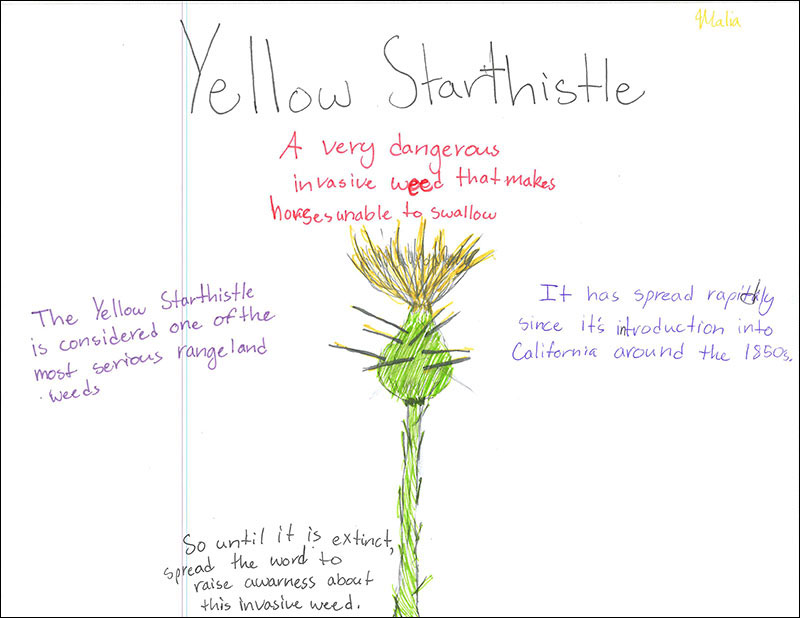 Malia
Yellow Starthistle
A very dangerous
invasive weed that makes
horses unable to swallow
The Yellow Starthistle
is considered one of the
most serious rangeland
weeds
It has spread rapidly
since it's introduction into
California around the 1850s.
So until it is extinct,
spread the word to
raise awarness about
this invasive weed.